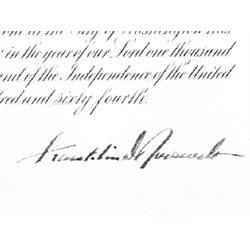 in the City of Washington this
in the year of our Lord one thousand
and of the Independence of the United
dred and sixty fourth.
Franklin D Roosevelt